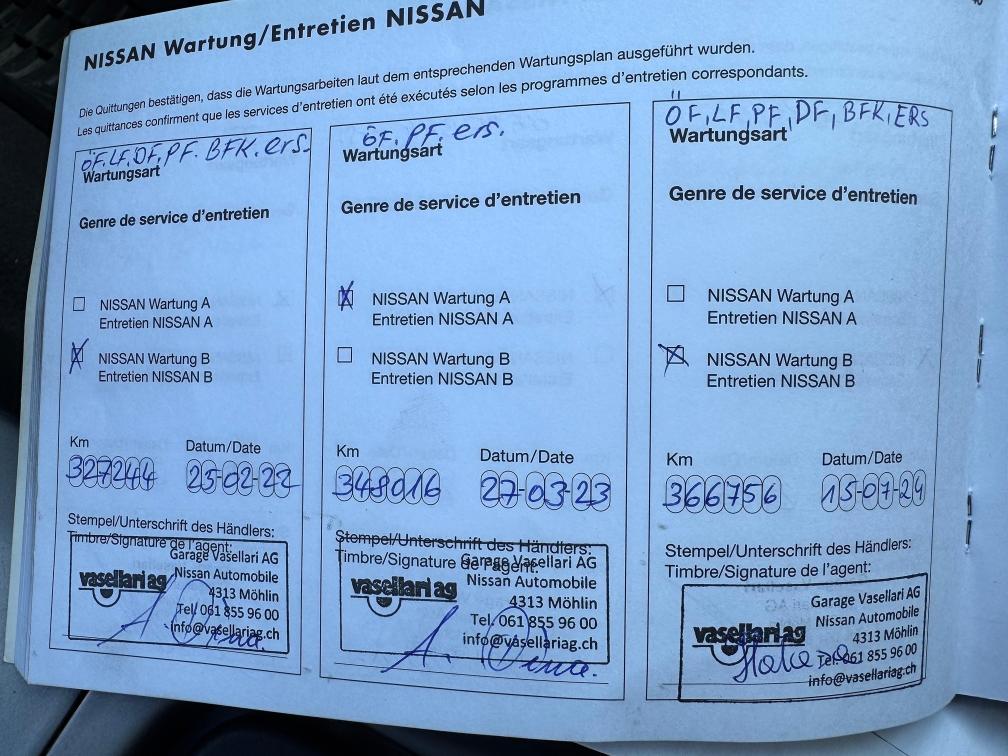 NISSAN Wartung/Entretien NISSAN
Die Quittungen bestätigen, dass die Wartungsarbeiten laut dem entsprechenden Wartungsplan ausgeführt wurden.
Les quittances confirment que les services d'entretien ont été exécutés selon les programmes d'entretien correspondants.
ÖF. LF. DF. PF. BFK. ers.
Wartungsart
Genre de service d'entretien
NISSAN Wartung A
Entretien NISSAN A
NISSAN Wartung B
Entretien NISSAN B
Km
Datum/Date
327244
25-02-22
Stempel/Unterschrift des Händlers:
Timbre/Signature de l'agent:
Garage Vasellari AG
vasellari ag
Nissan Automobile
4313 Möhlin
Tel. 061 855 96 00
info@vasellariag.ch
ÖF. PF. ers.
Wartungsart
Genre de service d'entretien
NISSAN Wartung A
Entretien NISSAN A
NISSAN Wartung B
Entretien NISSAN B
Km
Datum/Date
348016
27-03-23
Stempel/Unterschrift des Händlers:
Timbre/Signature de l'agent:
Garage Vasellari AG
vasellari ag
Nissan Automobile
4313 Möhlin
Tel. 061 855 96 00
info@vasellariag.ch
ÖF, LF, PF, DF, BFK, ERS
Wartungsart
Genre de service d'entretien
NISSAN Wartung A
Entretien NISSAN A
NISSAN Wartung B
Entretien NISSAN B
Km
Datum/Date
366756
15-07-24
Stempel/Unterschrift des Händlers:
Timbre/Signature de l'agent:
Garage Vasellari AG
vasellari ag
Nissan Automobile
4313 Möhlin
Tel. 061 855 96 00
info@vasellariag.ch